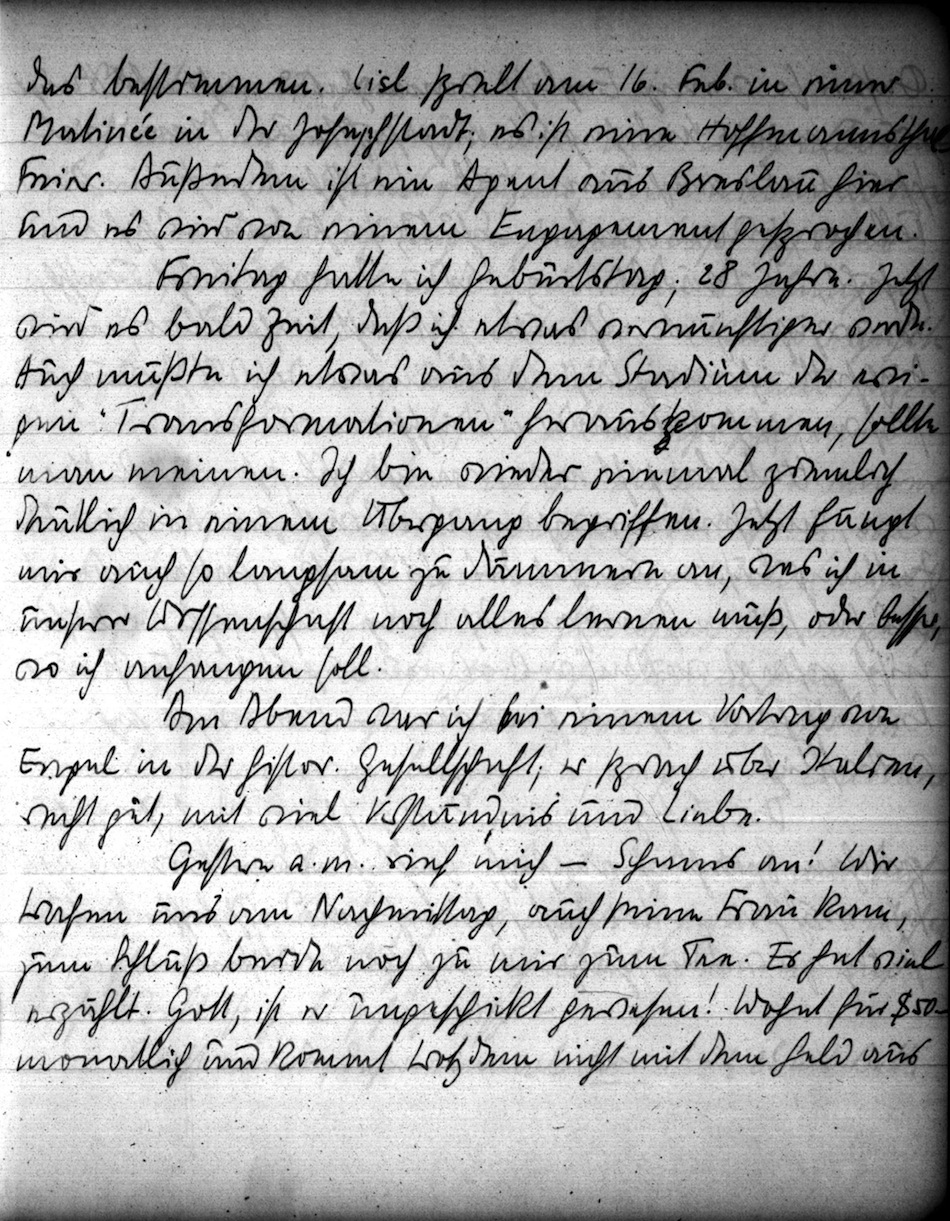 das bestimmen. Lisl spielt am 16. Feb. in einer
Matinée in der Josephstadt; es ist eine Hoffmannsthal
Feier. Außerdem ist ein Agent aus Breslau hier
und es wird von einem Engagement gesprochen.
Freitag hatte ich Geburtstag; 28 Jahre. Jetzt
wird es bald Zeit, daß ich etwas vernünftiger werde.
Auch müßte ich etwas aus dem Stadium der ewi-
gen "Transformationen" herauskommen, sollte
man meinen. Ich bin wieder einmal ziemlich
deutlich in einem Übergang begriffen. Jetzt fängt
mir auch so langsam zu dämmern an, was ich in
unserer Wissenschaft noch alles lernen muß, oder besser,
wo ich anfangen soll.
Am Abend war ich bei einem Vortrag von
Engel in der histor. Gesellschaft; er sprach über Italien,
recht gut, mit viel Verständnis und Liebe.
Gestern a.m. rief mich — Schams an! Wir
trafen uns am Nachmittag, auch seine Frau kam,
zum Schluß beide noch zu mir zum Tee. Er hat viel
erzählt. Gott, ist er ungeschickt gewesen! Wohnt für $50–
monatlich und kommt trotzdem nicht mit dem Geld aus